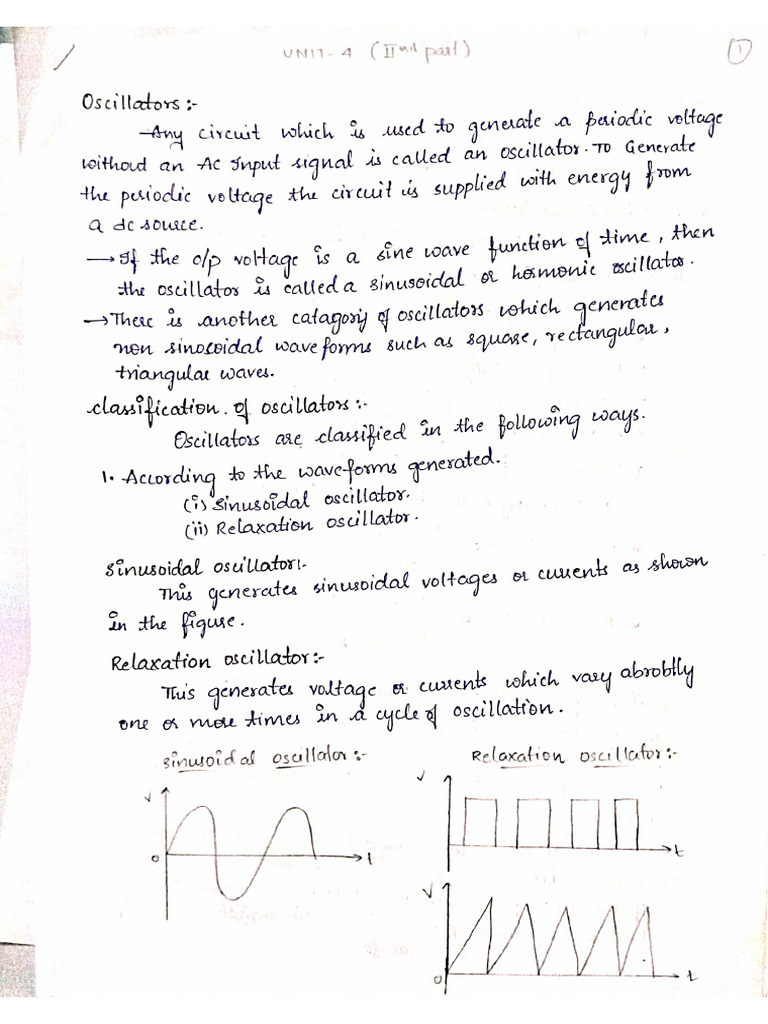 UNIT-4 (IInd part)
1
Oscillators:-
Any circuit which is used to generate a periodic voltage
without an AC Input signal is called an oscillator. To Generate
the periodic voltage the circuit is supplied with energy from
a dc source.
→ If the o/p voltage is a sine wave function of time, then
the oscillator is called a sinusoidal or hormonic oscillator.
→ There is another catagory of oscillators which generates
non sinosoidal waveforms such as square, rectangular,
triangular waves.
classification of oscillators:-
Oscillators are classified in the following ways.
1. According to the waveforms generated.
(i) Sinusoidal oscillator.
(ii) Relaxation oscillator.
Sinusoidal oscillator:-
This generates sinusoidal voltages or currents as shown
in the figure.
Relaxation oscillator:-
This generates voltage or currents which vary abrobtly
one or more times in a cycle of oscillation.
Sinusoidal oscillator:-
Relaxation oscillator:-
V
0
t
V
t
V
0
t